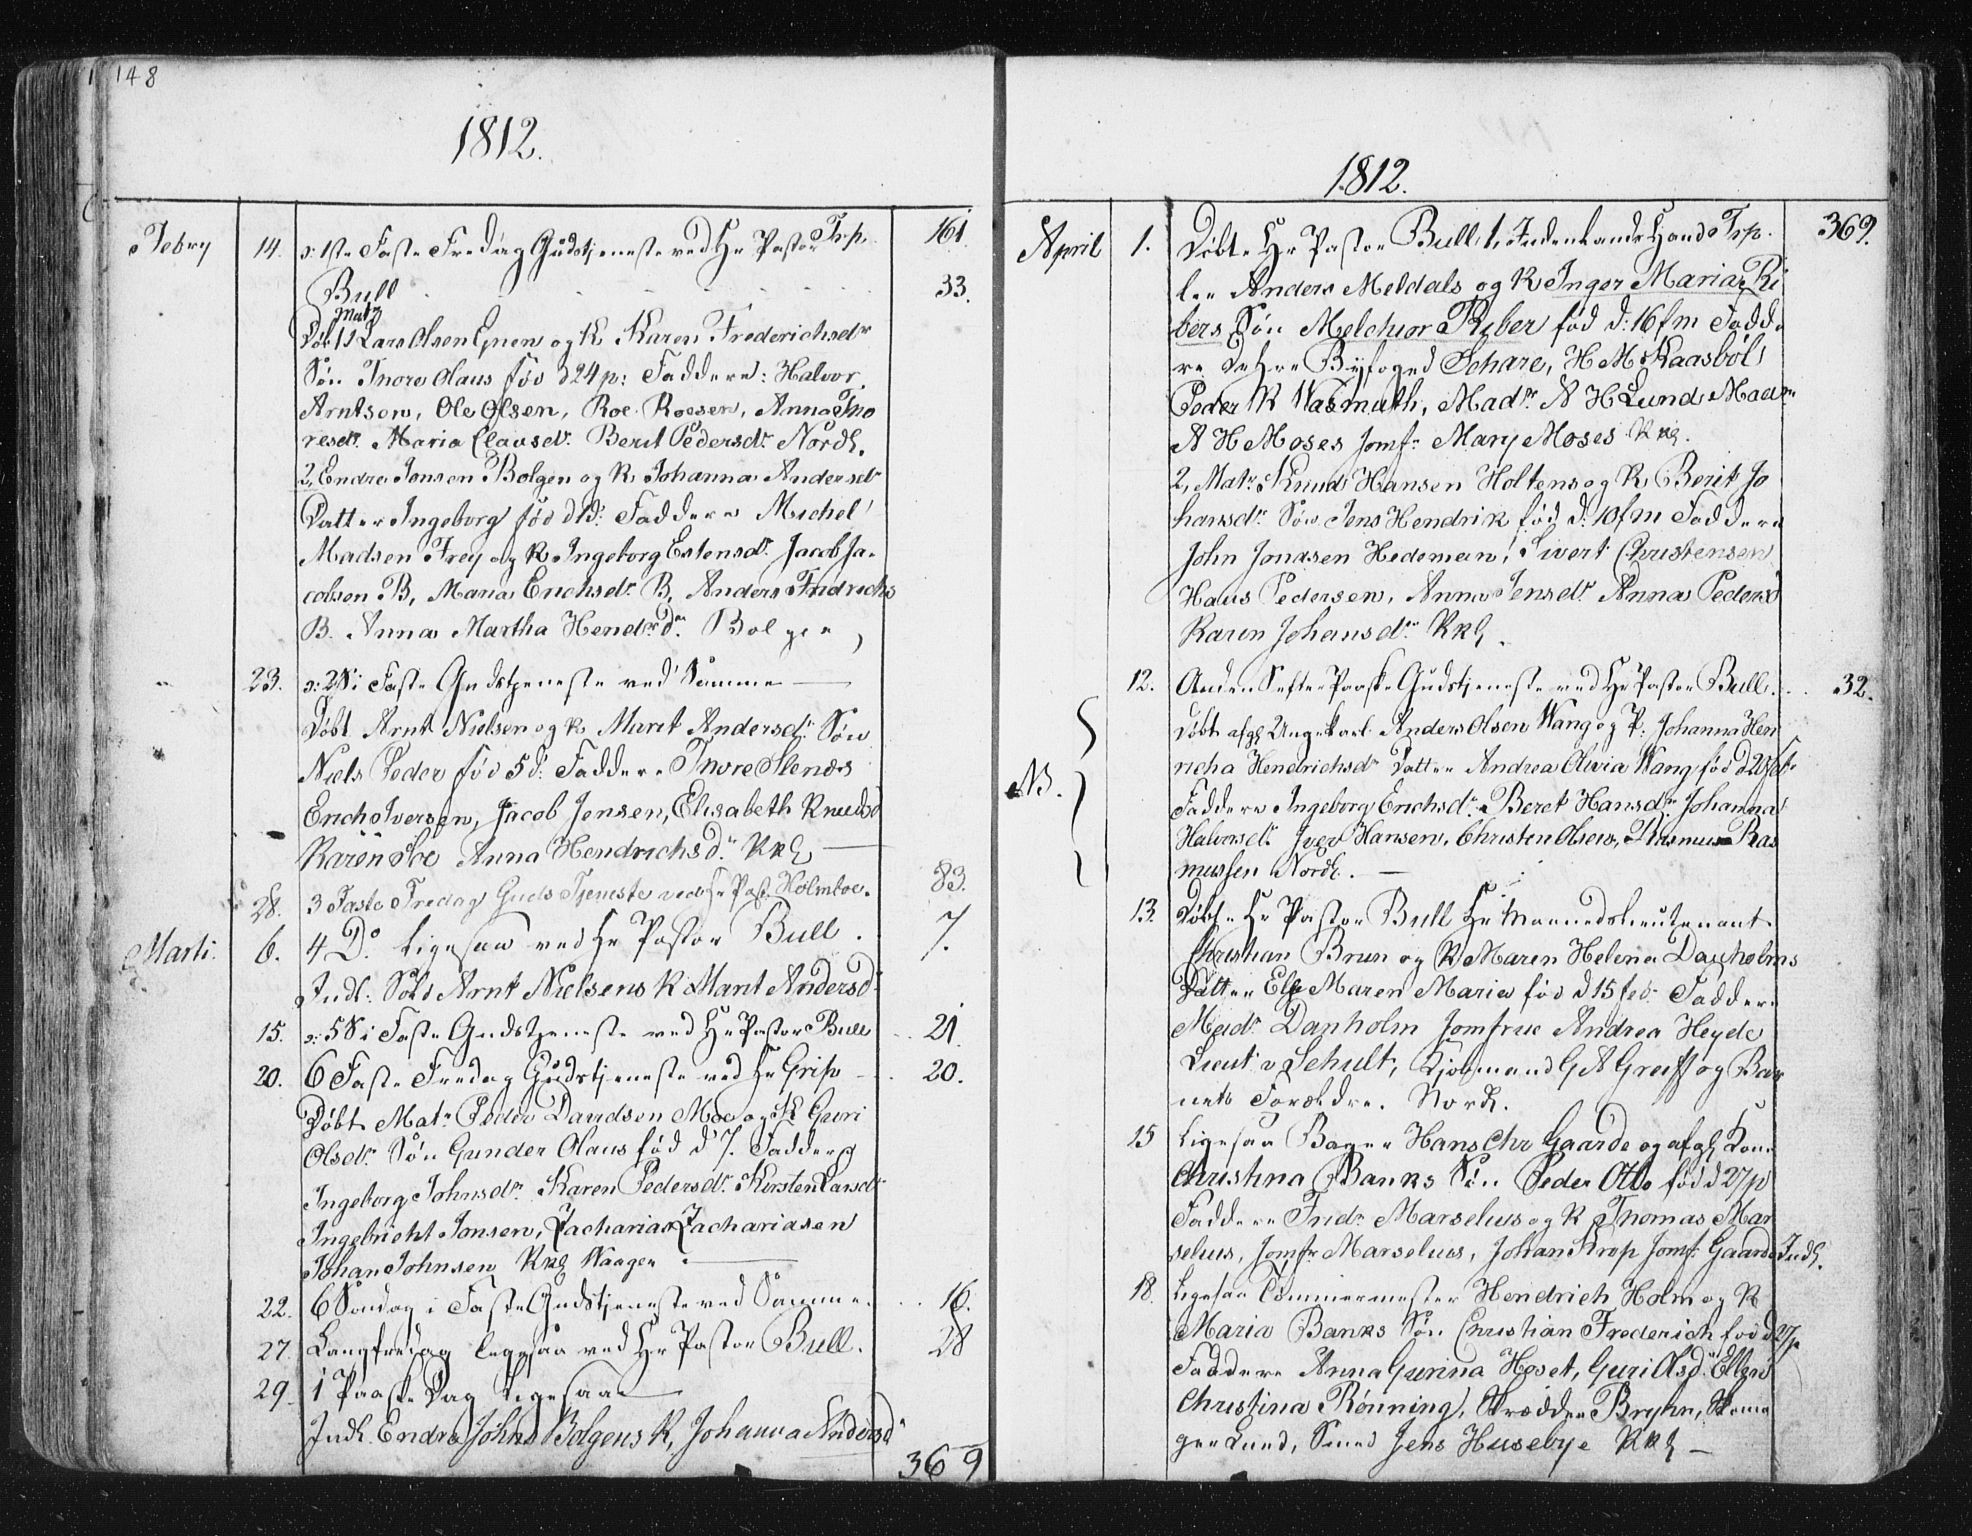 148
1812.
Febry 14. 1ste Faste Fredag Gudstjeneste ved Hr Pastor Trp. 161
Bull . . . . . 33.
Matr
Døbt 1 Lars Olsen og K Karen Frederichsdr
Søn Thore Olaus fød d 24 p: Faddere: Halvor
Arntsen, Ole Olsen, Roe Roesen, Anna Tho
resdr. Maria Clausdr. Berit Pedersdr. Nordl.
2, Endre Jonsen Bolgen og K. Johanna Andersdr
Datter Ingeborg fød d: Faddere Michel
Madsen Frey og K. Ingeborg Estensdr. Jacob Ja-
cobsen B, Maria Erichsdr. B, Anders Fridrichs
B. Anna Martha Hendr.dr. Bolgen,
23. 2 S i Faste Gudstjeneste ved Samme —
Døbt Arnt Nielsen og K Marit Andersdr. Søn
Niels Peder fød 5 d: Faddere Thore Stenæs
Erich Iversen, Jacob Jensen, Elisabeth Knudsd
Karen Soe Anna Hendrichsdr. —
28. 3 Faste Fredag Guds Tjeneste ved Hr Past. Holmboe. 83.
Marti. 6. 4 Do. ligesaa ved Hr Pastor Bull . 7.
Indl: Sold Arnt Nielsens K Marit Andersd
15. 5 S i Faste Gudstjeneste ved Hr Pastor Bull .. 21.
20. 6 Faste Fredag Gudstjeneste ved Hr Grip — . 20.
Døbt Matr Peder Davidsen Moe og K Guri
Olsdr. Søn Gunder Olaus fød d 7. Faddere
Ingeborg Johnsdr. Karen Pedersdr. Kirsten Larsdr
Ingebricht Jonsen, Zacharias Zachariasen
Johan Johnsen Waagen . —
22. 6 Søndag i Faste Gudstjeneste ved Samme. . . 16.
27. Langfredag ligesaa ved Hr Pastor Bull. 28
29. 1 Paaske Dag ligesaa —
Indl. Endre Johns Bolgens K, Johanna Andersd
369
1812.
April 1. Døbte Hr Pastor Bull 1, Trp. 369.
Anders Meldals og K Inger Maria Ri
bers Søn Melchior Riber fød d: 16 f m Fadde
re Byfoged Schare, H M Kaasbøl
Peder K Wasmuth, Madm A H Lund Madm
A H Moses Jomfr Mary Moses
2, Matr. Knud Hansen Holtens og K Berit Jo
hansdr. Søn Jens Hendrik fød d: 10 f m Faddere
John Jonasen Hedeman, Sivert Christensen
Hans Pedersen, Anna Jensdr. Anna Pedersd
Karen Johansdr.
12. Anden S efter Paaske Gudstjeneste ved Hr Pastor Bull. . . 32.
Døbt afgl Ungekarl Anders Olsen Wang og P. Johanna Hen
richa Hendrichsdr Datter Andrea Olivia Wang fød d 20 febr
NB. Faddere Ingeborg Erichsdr. Beret Hansdr. Johanna
Halvorsdr. Iver Hansen, Christen Olsen, Rasmus Ras
mussen Nordl. —
13. Døbte Hr Pastor Bull Hr Maanedslieutenant
Christian Brun og K Maren Helena Danholms
Datter Else Maren Maria fød d 15 feb. Faddere
Madm Danholm Jomfrue Andrea Heyde
Lieut v Schult, Kjøbmand G A Greiff og Bar
nets Forældre. Nordl.
15 Ligesaa Bager Hans Chr Gaarde og afgl Kone
Christina Banks Søn Peder Otto fød d 27 p
Faddere Fridr. Marselius og K Thomas Mar
selius, Jomfr Marselius, Johan Krop Jomf Gaarde Indl.
18. Ligesaa Tømmermester Hendrich Holm og K
Maria Banks Søn Christian Frederich fød d 27 p
Faddere Anna Gurina Hoset, Guri Olsd. Ellen
Christina Rønning, Skrædder Bryhn, Skoma
ger Lund, Smed Jens Husebye —